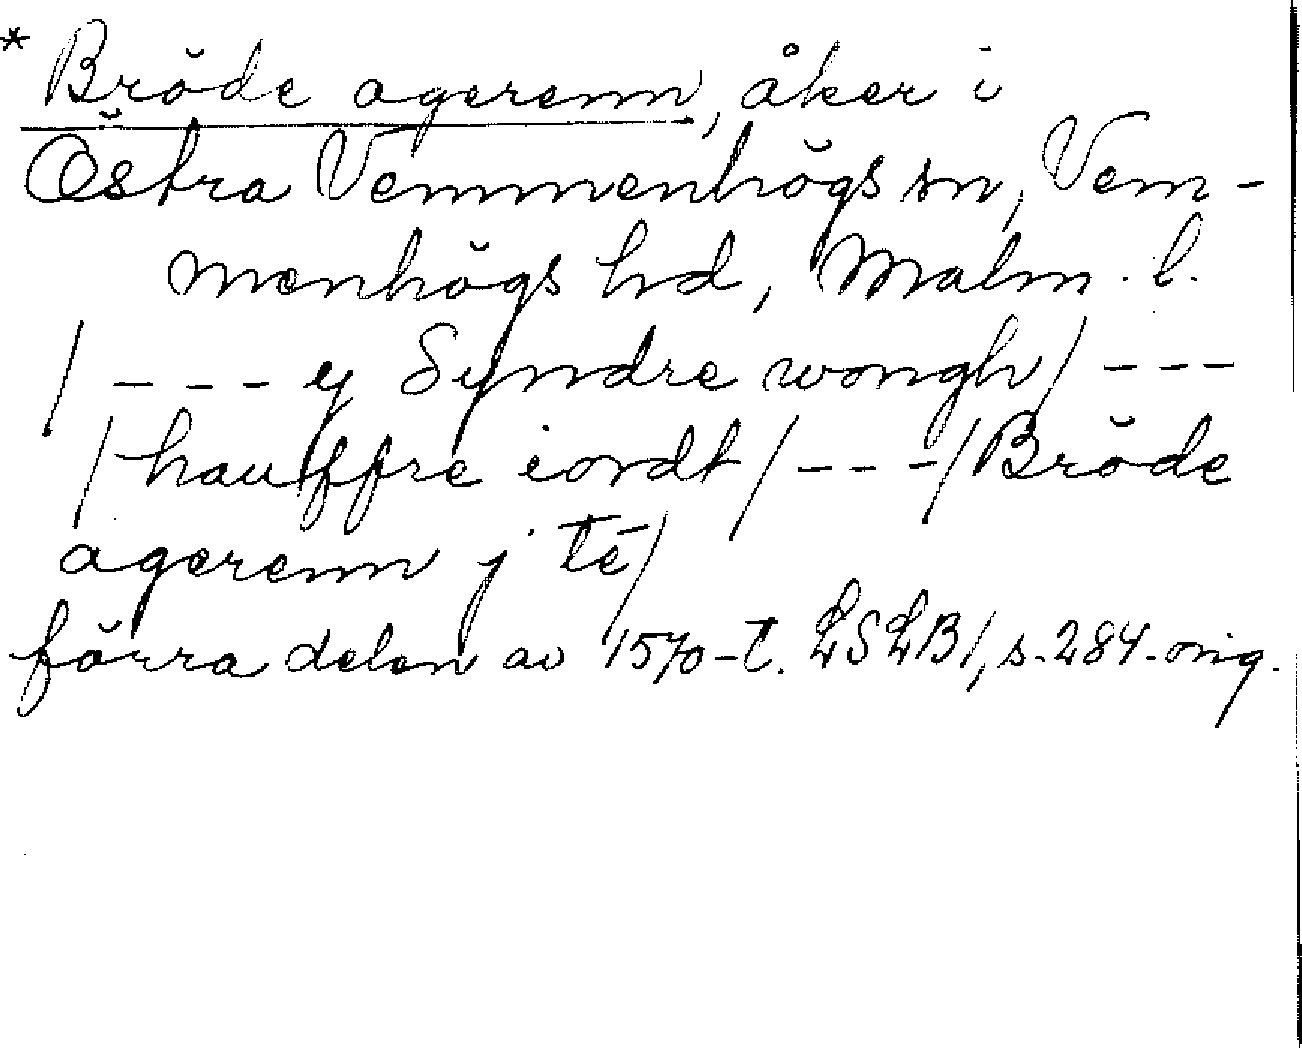 * Bröde agerenn, åker i
Östra Vemmenhögs sn, Vem-
menhögs hd, Malm. l.
/ - - - y Syndre wongh / - - -
/ hauffre iordt / - - - / Bröde
agerenn j té /
förra delen av 1570-t. LSLB 1, s. 284. orig.